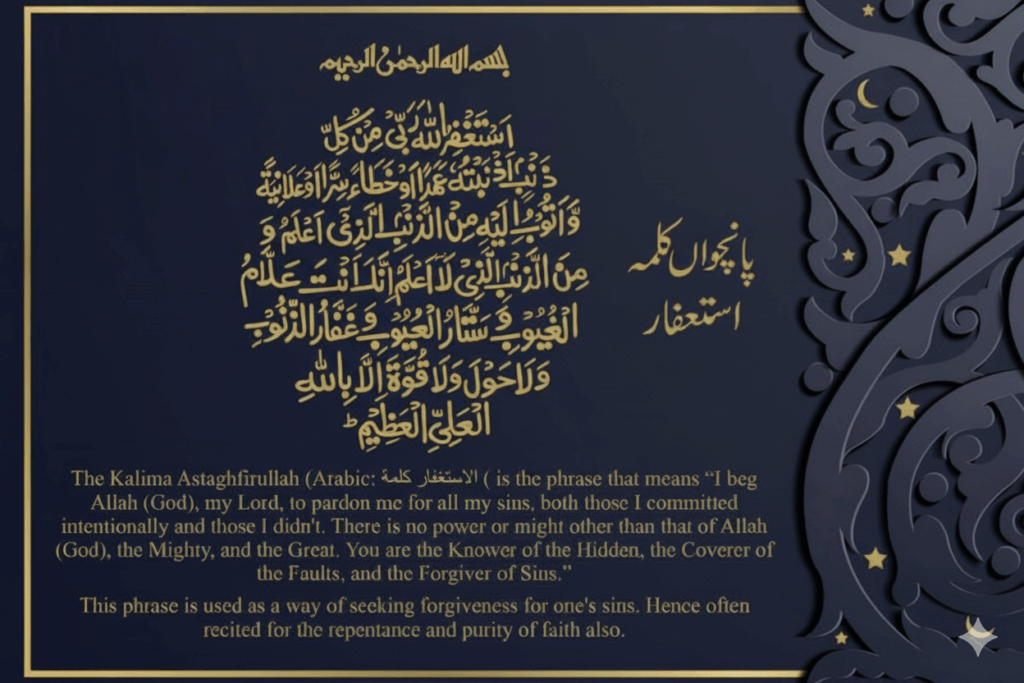 بسم الله الرحمٰن الرحیم
اَسْتَغْفِرُ اللهَ رَبِّیْ مِنْ کُلِّ
ذَنْۢبٍ اَذْنَبْتُهٗ عَمَدًا اَوْ خَطَاءً سِرًّا اَوْ عَلَانِیَةً
وَّاَتُوْبُ اِلَیْهِ مِنَ الذَّنْۢبِ الَّذِیْٓ اَعْلَمُ وَ
مِنَ الذَّنْۢبِ الَّذِیْ لَآ اَعْلَمُ اِنَّكَ اَنْتَ عَلَّامُ
الْغُیُوْبِ وَ سَتَّارُ الْعُیُوْبِ وَ غَفَّارُ الذُّنُوْبِ
وَلَا حَوْلَ وَلَا قُوَّةَ اِلَّا بِاللهِ
الْعَلِیِّ الْعَظِیْمِ ؕ
پانچواں کلمہ
استعفار
The Kalima Astaghfirullah (Arabic: الاستغفار كلمة ( is the phrase that means “I beg
Allah (God), my Lord, to pardon me for all my sins, both those I committed
intentionally and those I didn't. There is no power or might other than that of Allah
(God), the Mighty, and the Great. You are the Knower of the Hidden, the Coverer of
the Faults, and the Forgiver of Sins.”
This phrase is used as a way of seeking forgiveness for one's sins. Hence often
recited for the repentance and purity of faith also.